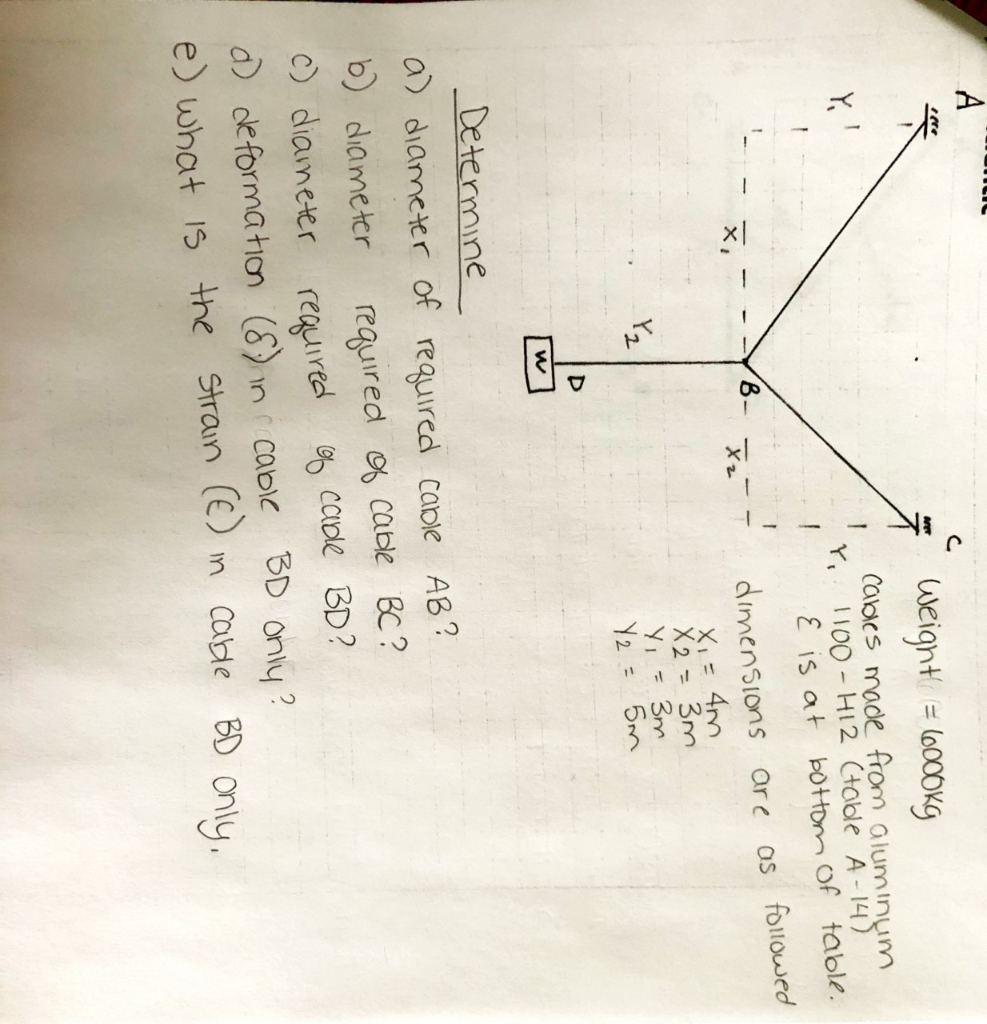 A
C
Weight = 6000Kg
cables made from aluminum
1100-H12 (table A-14)
ε is at bottom of table.
Y₁
Y₁
X₁
B
X₂
dimensions are as followed
X₁ = 4m
X₂ = 3m
Y₁ = 3m
Y₂ = 5m
Y₂
D
W
Determine
a) diameter of required cable AB?
b) diameter required of cable BC?
c) diameter required of cable BD?
d) deformation (δ) in cable BD only?
e) What is the strain (ε) in cable BD only.